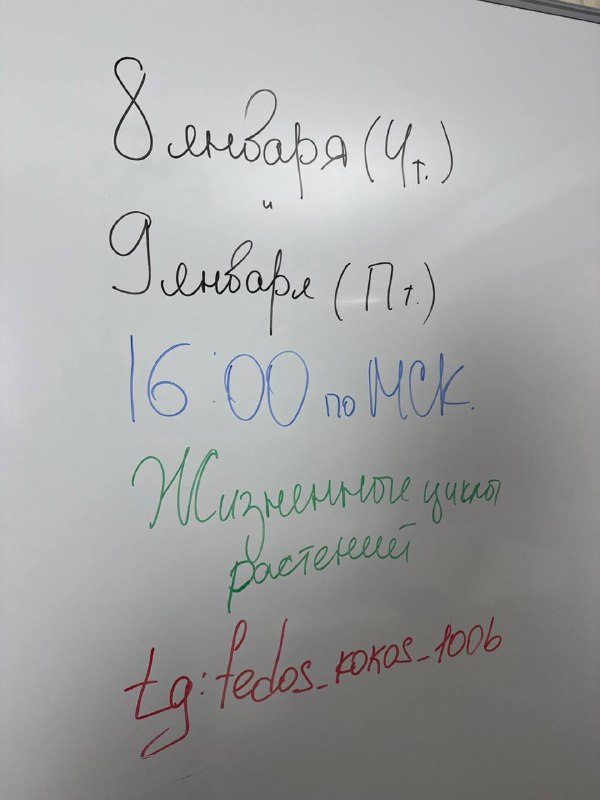 8 января (Чт.)
и
9 января (Пт.)
16:00 по МСК.
Жизненные циклы
растений
tg: fedos_kokos_100b